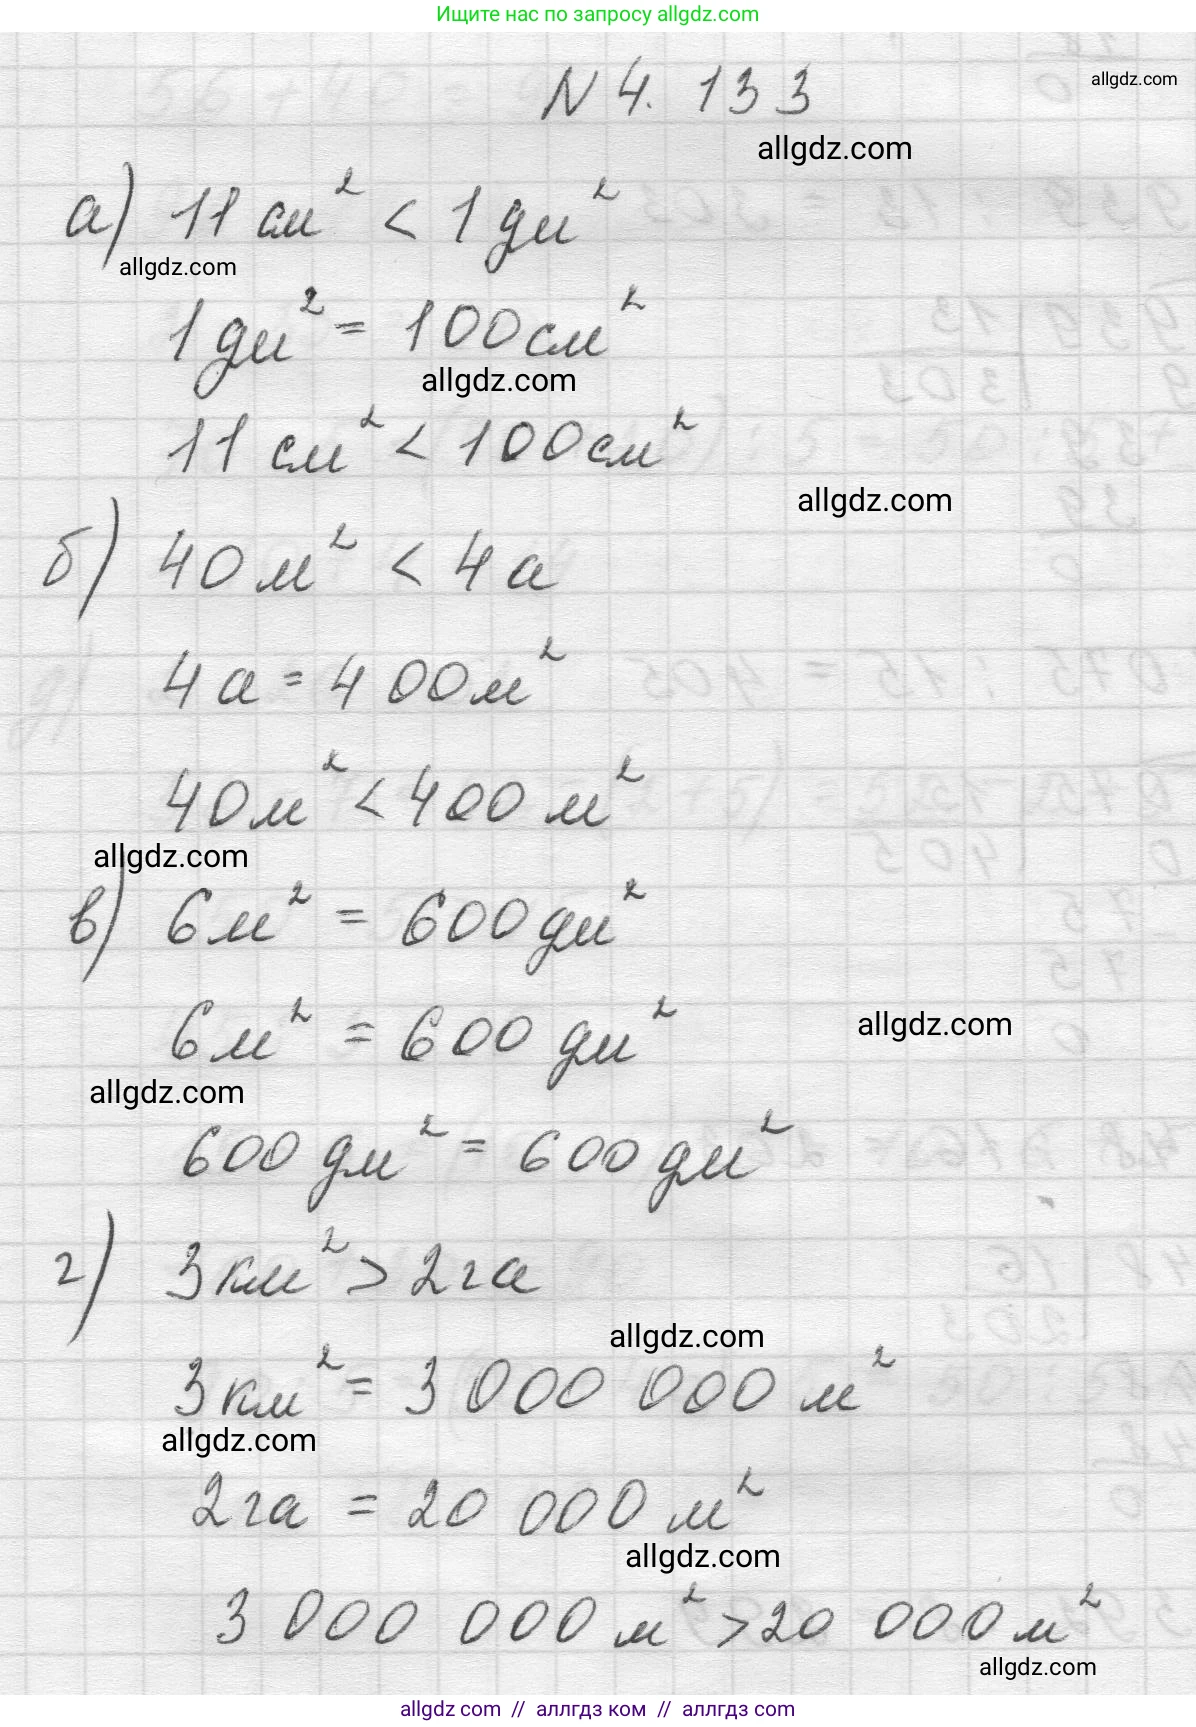 Ищите нас по запросу allgdz.com
N 4. 133
allgdz.com
allgdz.com
а) 11 см² < 1 дм²
allgdz.com
1 дм² = 100 см²
allgdz.com
11 см² < 100 см²
allgdz.com
б) 40 м² < 4 а
4 а = 400 м²
40 м² < 400 м²
allgdz.com
в) 6 м² = 600 дм²
6 м² = 600 дм²
allgdz.com
allgdz.com
600 дм² = 600 дм²
г) 3 км² > 2 га
allgdz.com
3 км² = 3 000 000 м²
allgdz.com
2 га = 20 000 м²
allgdz.com
3 000 000 м² > 20 000 м²
allgdz.com
allgdz com // аллгдз ком // аллгдз com